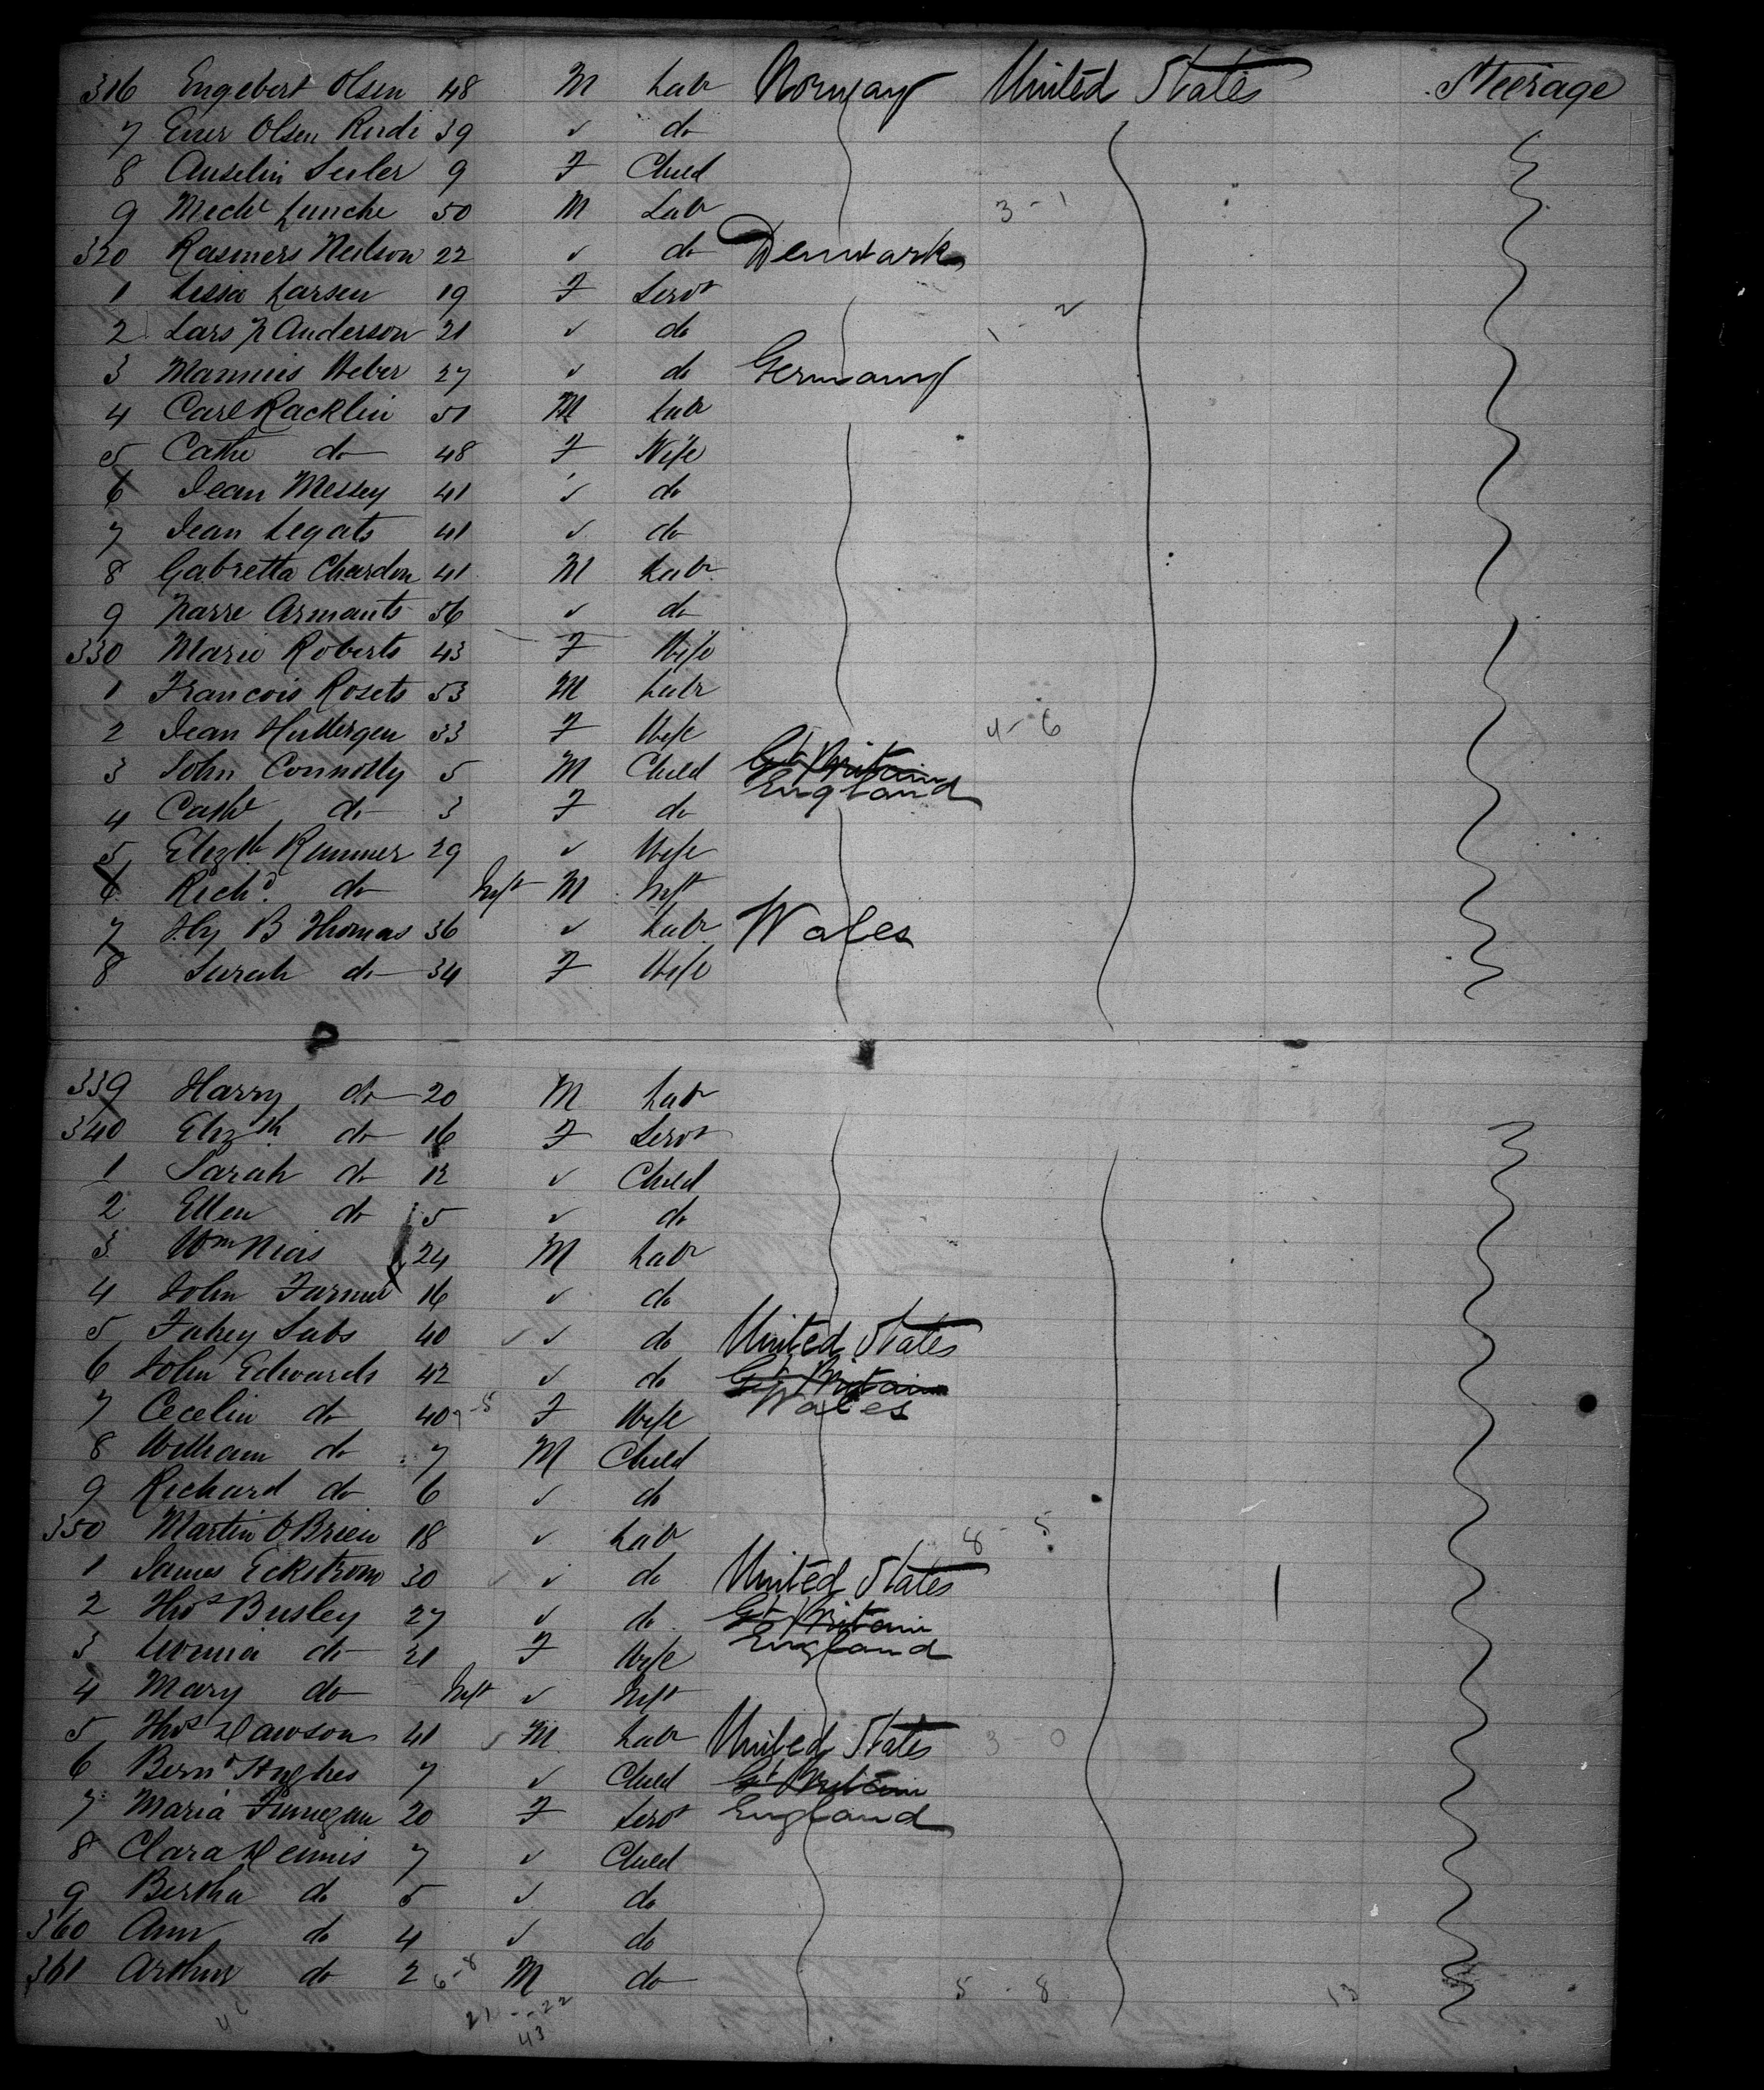 316 Engebert Olsen 48 M Labr Norway United States Steerage
7 Ener Olsen Rudi 39 ✓ do
8 Anselin Seiler 9 F Child
9 Michl Lunche 50 M Labr 3-1
320 Rasmers Neilson 22 ✓ do Denmark
1 Lissa Larsen 19 F Servt
2 Lars P Anderson 21 ✓ do 1-2
3 Mannies Weber 27 ✓ do Germany
4 Carl Racklin 51 M Labr
5 Cathe do 48 F Wife
6 Jean Messey 41 ✓ do
7 Jean Legats 41 ✓ do
8 Gabretta Chardon 41 M Labr
9 Narre Armants 56 ✓ do
330 Marie Roberts 43 F Wife
1 Francois Rosets 53 M Labr
2 Jean Huttergen 33 F Wife 4-6
3 John Connolly 5 M Child Gt Britain
England
4 Cathe do 3 F do
5 Elizth Rummer 29 ✓ Wife
6 Richd do Inft M Inft
7 Hy B Thomas 36 ✓ Labr Wales
8 Sarah do 34 F Wife
339 Harry do 20 M Labr
340 Elizth do 16 F Servt
1 Sarah do 12 ✓ Child
2 Ellen do 5 ✓ do
3 Wm Nias 24 M Labr
4 John Farmer 16 ✓ do
5 Fahey Labs 40 ✓ ✓ do United States
6 John Edwards 42 ✓ do Gt Britain
7 Cecelia do 40 7-5 F Wife Wales
8 William do 7 M Child
9 Richard do 6 ✓ do
350 Martin O'Brien 18 ✓ Labr 8-5
1 James Eckstrom 30 ✓ ✓ do United States
2 Thos Busley 27 ✓ do Gt Britain
3 Lovinia do 21 F Wife England
4 Mary do Inft ✓ Inft
5 Thos Dawson 41 ✓ M Labr United States 3-0
6 Bernd Hughes 7 ✓ Child Gt Britain
7 Maria Finnegan 20 F Servt England
8 Clara Dennis 7 ✓ Child
9 Bertha do 5 ✓ do
360 Ann do 4 ✓ do
361 Arthur do 2 6-8 M do 5-8 13
21--22
43